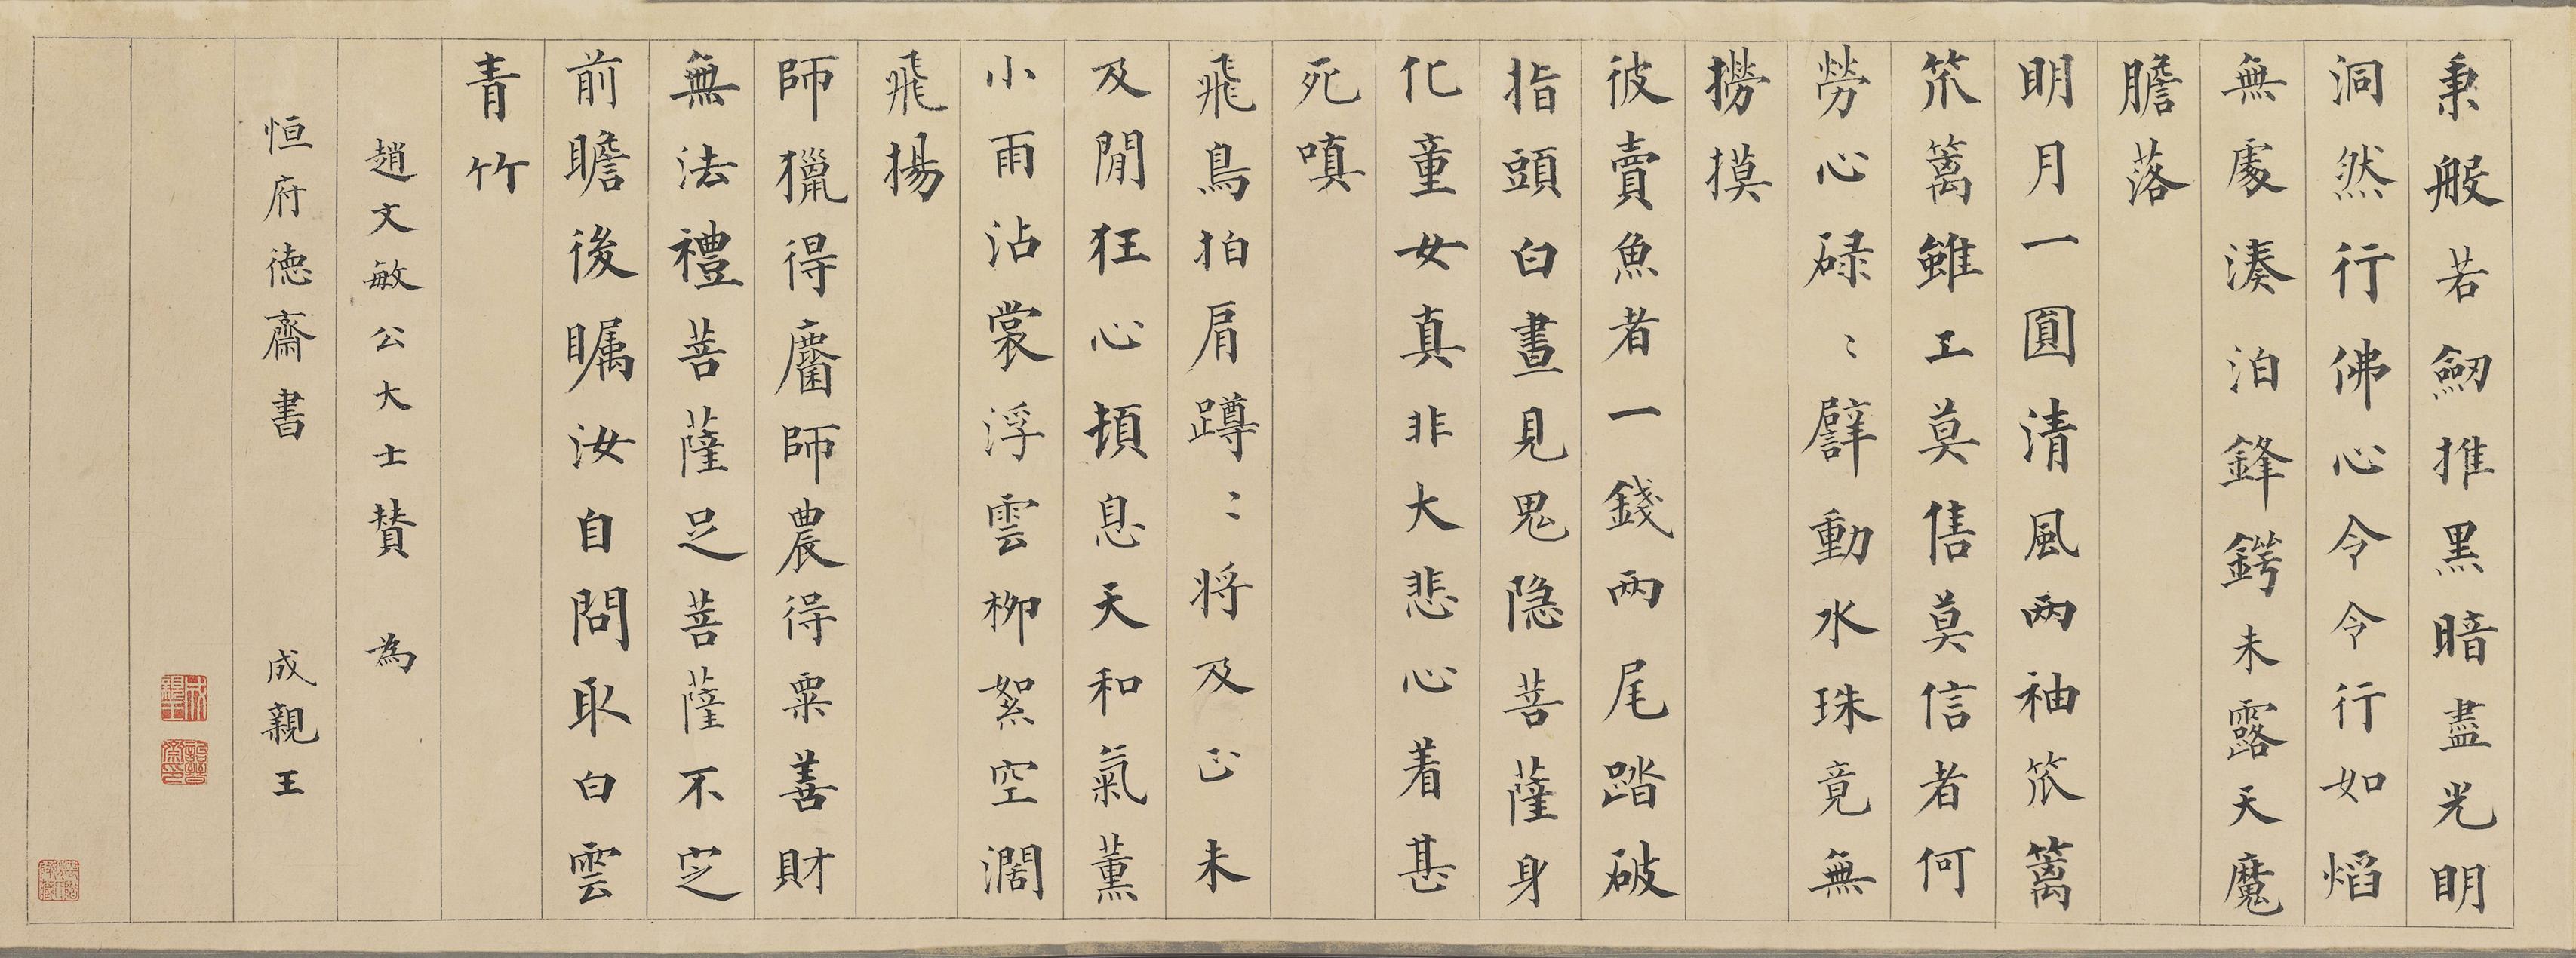 秉般若劒推黑暗盡光明
洞然行佛心令令行如熖
無處湊泊鋒鍔未露天魔
膽落
明月一圓清風兩袖笊篱
笊篱雖工莫售莫信者何
勞心碌〻劈動水珠竟無
撈摸
彼賣魚者一錢兩尾踏破
指頭白晝見鬼隐菩薩身
化童女真非大悲心着甚
死嗔
飛鳥拍肩蹲〻将及已未
及閒狂心頓息天和氣薰
小雨沾裳浮雲柳絮空濶
飛揚
師獵得麕師農得粟善財
無法禮菩薩足菩薩不芝
前瞻後矚汝自問取白雲
青竹
趙文敏公大士賛 為
恒府德齋書 成親王